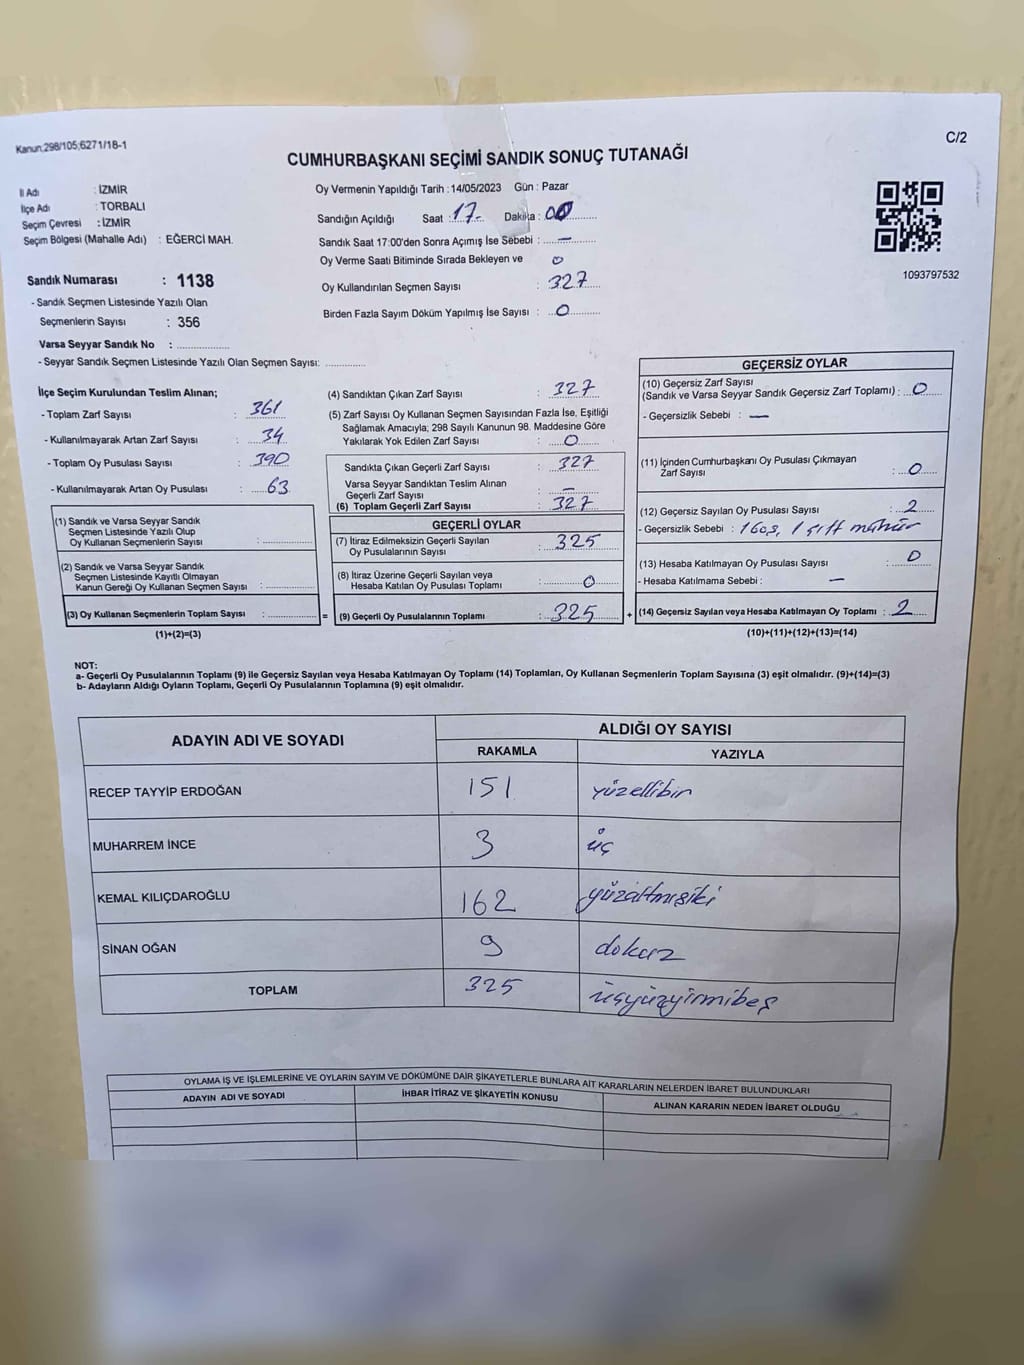 Kanun;298/105;6271/18-1
C/2
CUMHURBAŞKANI SEÇİMİ SANDIK SONUÇ TUTANAĞI
İl Adı : İZMİR
İlçe Adı : TORBALI
Seçim Çevresi : İZMİR
Seçim Bölgesi (Mahalle Adı) : EĞERCİ MAH.
Sandık Numarası : 1138
- Sandık Seçmen Listesinde Yazılı Olan
Seçmenlerin Sayısı : 356
Varsa Seyyar Sandık No : ..............
- Seyyar Sandık Seçmen Listesinde Yazılı Olan Seçmen Sayısı: ..............
Oy Vermenin Yapıldığı Tarih : 14/05/2023 Gün : Pazar
Sandığın Açıldığı Saat : 17- Dakika : 00
Sandık Saat 17:00'den Sonra Açımış İse Sebebi : —
Oy Verme Saati Bitiminde Sırada Bekleyen ve 0
Oy Kullandırılan Seçmen Sayısı : 327
Birden Fazla Sayım Döküm Yapılmış İse Sayısı : 0
1093797532
İlçe Seçim Kurulundan Teslim Alınan;
- Toplam Zarf Sayısı : 361
- Kullanılmayarak Artan Zarf Sayısı : 34
- Toplam Oy Pusulası Sayısı : 390
- Kullanılmayarak Artan Oy Pusulası : 63
(1) Sandık ve Varsa Seyyar Sandık
Seçmen Listesinde Yazılı Olup
Oy Kullanan Seçmenlerin Sayısı : ..............
(2) Sandık ve Varsa Seyyar Sandık
Seçmen Listesinde Kayıtlı Olmayan
Kanun Gereği Oy Kullanan Seçmen Sayısı : ..............
(3) Oy Kullanan Seçmenlerin Toplam Sayısı : .............. =
(1)+(2)=(3)
(4) Sandıktan Çıkan Zarf Sayısı : 327
(5) Zarf Sayısı Oy Kullanan Seçmen Sayısından Fazla İse, Eşitliği
Sağlamak Amacıyla; 298 Sayılı Kanunun 98. Maddesine Göre
Yakılarak Yok Edilen Zarf Sayısı : 0
Sandıkta Çıkan Geçerli Zarf Sayısı : 327
Varsa Seyyar Sandıktan Teslim Alınan
Geçerli Zarf Sayısı : —
(6) Toplam Geçerli Zarf Sayısı : 327
GEÇERLİ OYLAR
(7) İtiraz Edilmeksizin Geçerli Sayılan
Oy Pusulalarının Sayısı : 325
(8) İtiraz Üzerine Geçerli Sayılan veya
Hesaba Katılan Oy Pusulası Toplamı : 0
(9) Geçerli Oy Pusulalarının Toplamı : 325 +
GEÇERSİZ OYLAR
(10) Geçersiz Zarf Sayısı
(Sandık ve Varsa Seyyar Sandık Geçersiz Zarf Toplamı) : 0
- Geçersizlik Sebebi : —
(11) İçinden Cumhurbaşkanı Oy Pusulası Çıkmayan
Zarf Sayısı : 0
(12) Geçersiz Sayılan Oy Pusulası Sayısı : 2
- Geçersizlik Sebebi : 1 boş, 1 çift mühür
(13) Hesaba Katılmayan Oy Pusulası Sayısı : 0
- Hesaba Katılmama Sebebi : —
(14) Geçersiz Sayılan veya Hesaba Katılmayan Oy Toplamı : 2
(10)+(11)+(12)+(13)=(14)
NOT:
a- Geçerli Oy Pusulalarının Toplamı (9) ile Geçersiz Sayılan veya Hesaba Katılmayan Oy Toplamı (14) Toplamları, Oy Kullanan Seçmenlerin Toplam Sayısına (3) eşit olmalıdır. (9)+(14)=(3)
b- Adayların Aldığı Oyların Toplamı, Geçerli Oy Pusulalarının Toplamına (9) eşit olmalıdır.
ADAYIN ADI VE SOYADI ALDIĞI OY SAYISI
RAKAMLA YAZIYLA
RECEP TAYYİP ERDOĞAN 151 yüzellibir
MUHARREM İNCE 3 üç
KEMAL KILIÇDAROĞLU 162 yüzaltmışiki
SİNAN OĞAN 9 dokuz
TOPLAM 325 üçyüzyirmibeş
OYLAMA İŞ VE İŞLEMLERİNE VE OYLARIN SAYIM VE DÖKÜMÜNE DAİR ŞİKAYETLERLE BUNLARA AİT KARARLARIN NELERDEN İBARET BULUNDUKLARI
ADAYIN ADI VE SOYADI İHBAR İTİRAZ VE ŞİKAYETİN KONUSU ALINAN KARARIN NEDEN İBARET OLDUĞU